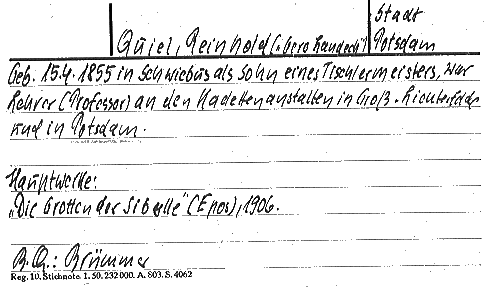 Stadt
Quiel, Reinhold (: bero Landeck") Potsdam
Geb. 15.4. 1855 in Schwiebus als Sohn eines Tischlermeisters, war
Lehrer (Professor) an den Kadettenanstalten in Groß-Lichterfelde
und in Potsdam.
Hauptwerke:
„Die Grotten der Sibylle" (Epos), 1906.
B.Q.: Brümmer
Reg. 10. Stichnote. 1. 50. 232000. A. 803. S. 4062